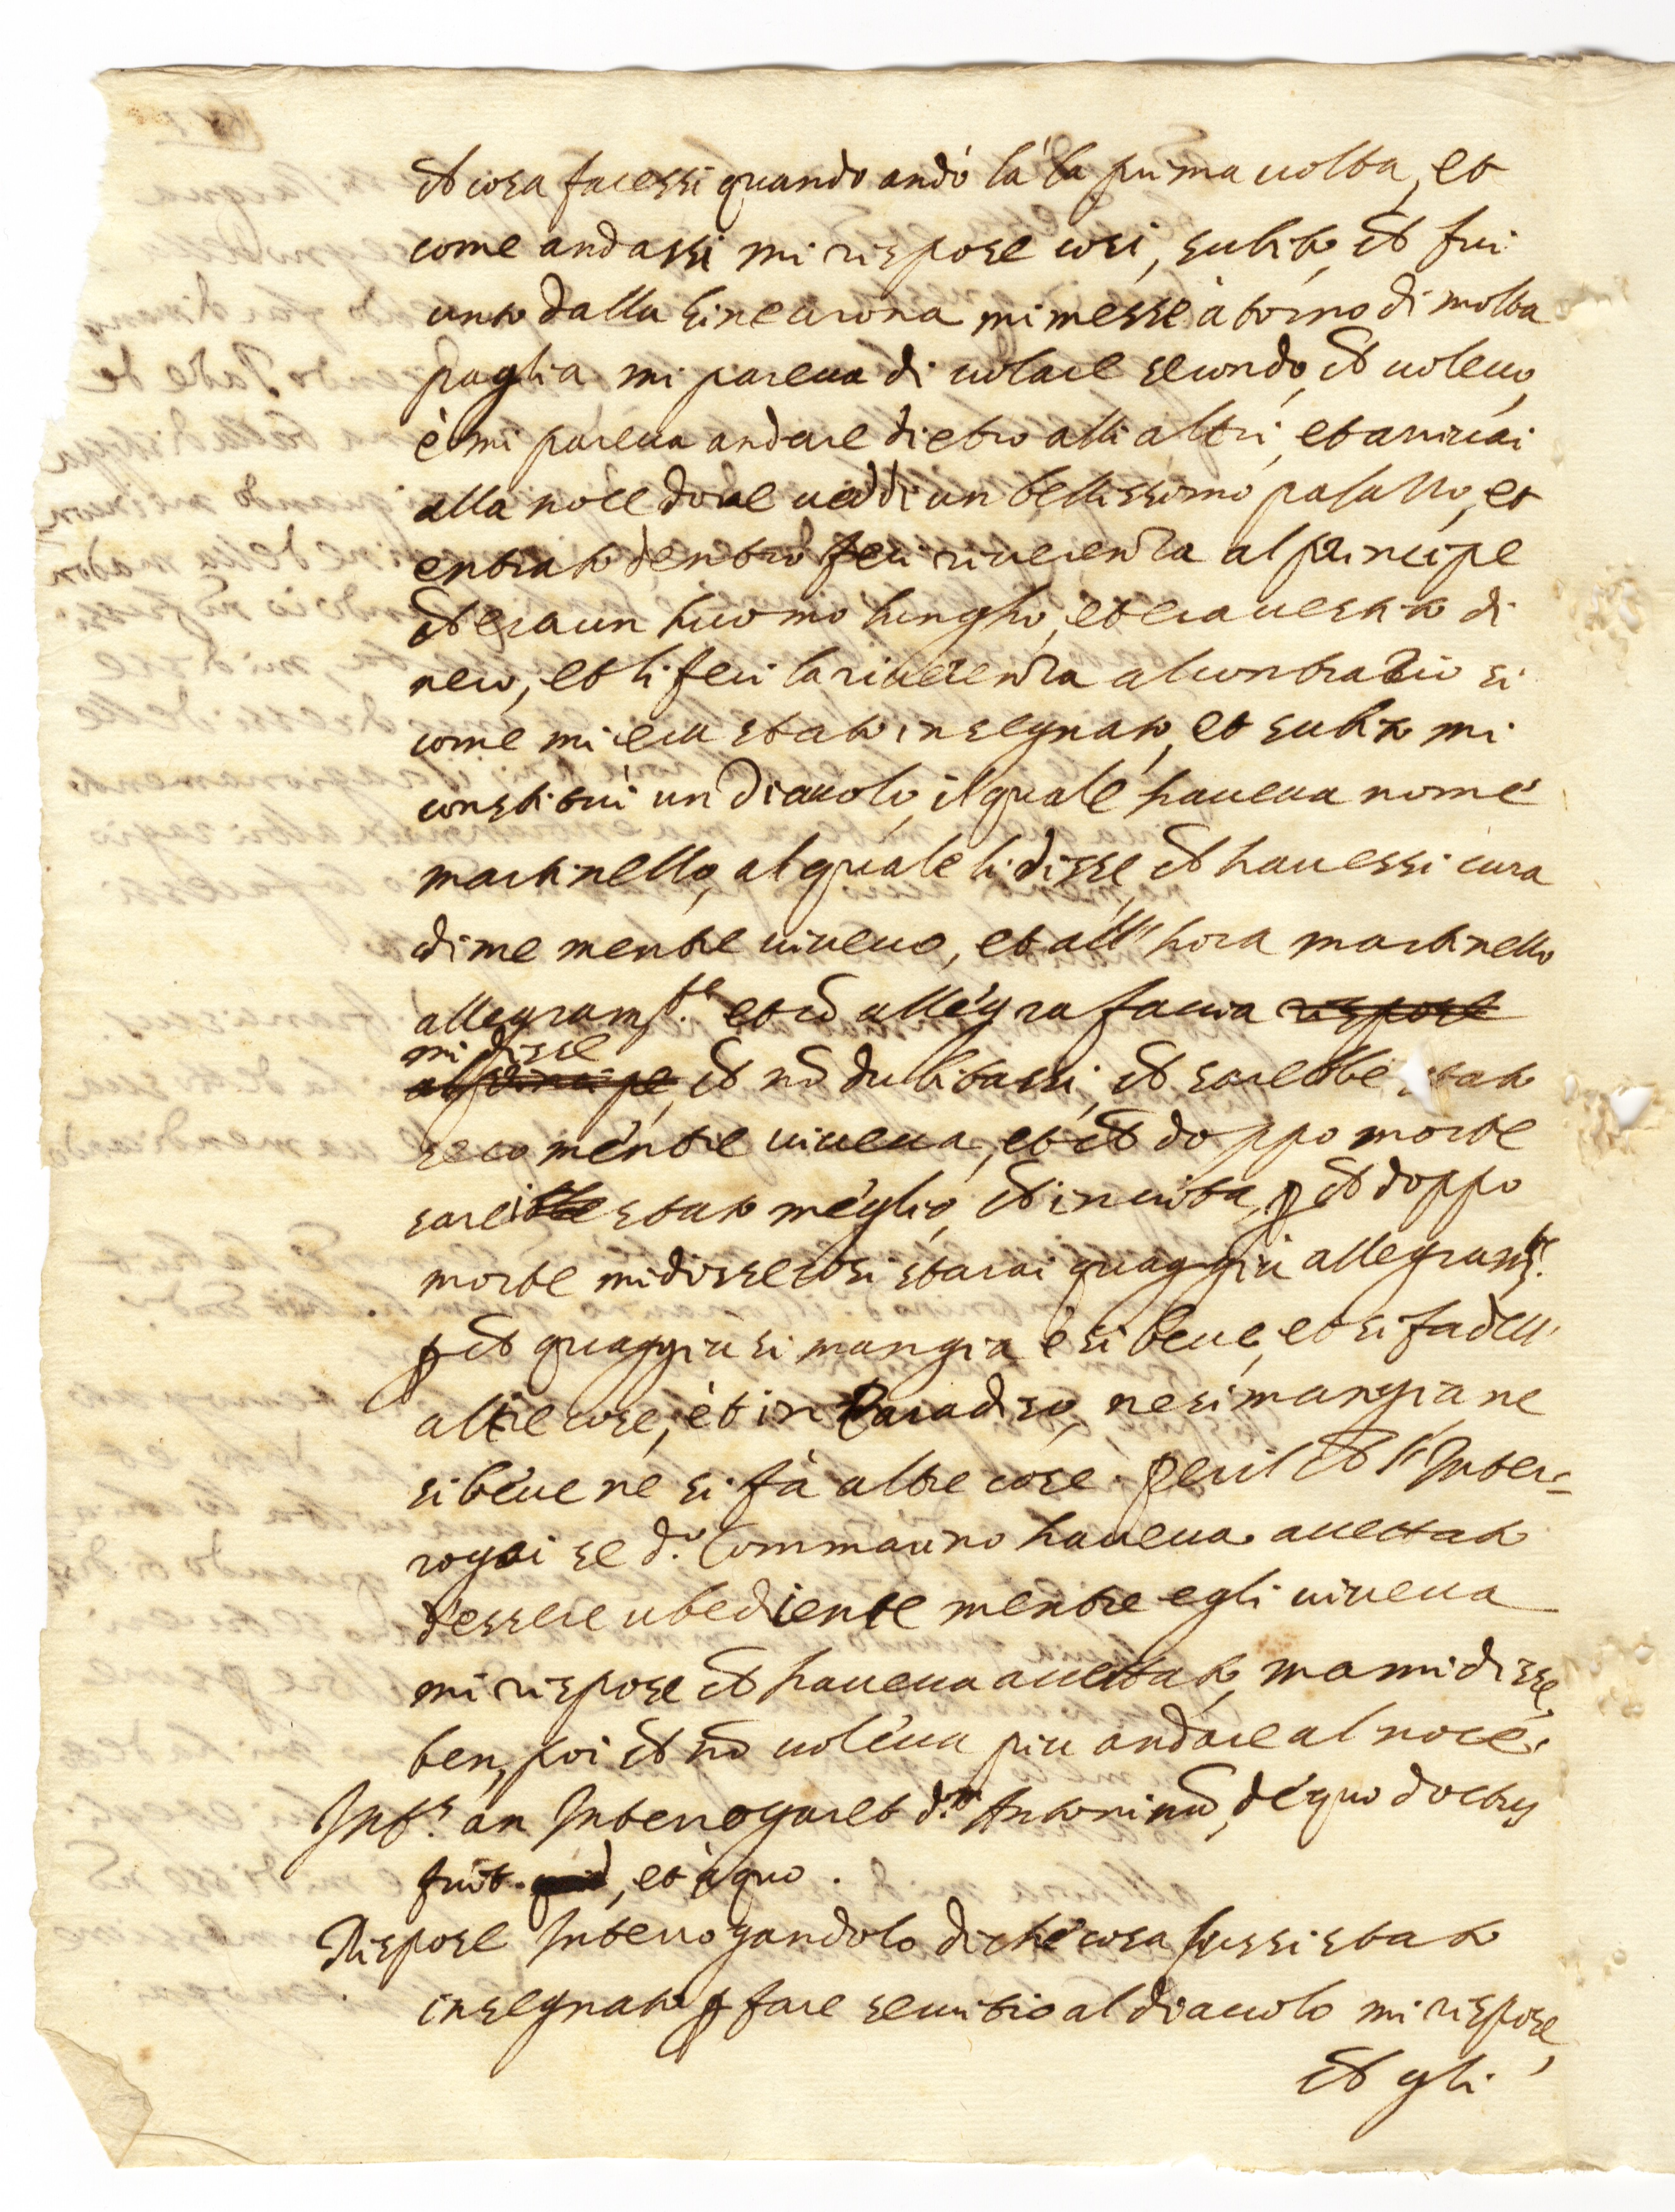 ch cosa facessi quando andò là la prima uolta, et
come andassi mi rispose cosi, subito, ch fui
unto dalla Sinearona mi messe à torno di molta
paglia mi pareua di uolare secondo, ch uoleuo,
è mi pareua andare dietro alli altri, et arriuai
alla noce doue ueddi un bellissimo palazzo, et
entrato dentro feci riuerenza al principe
ch era un huomo lungho, et era uestito di
nero, et li feci la riuerenza al contrario si
come mi era stato insegnato, et subito mi
constituì un Diauolo, il quale haueua nome
martinello, al quale li disse, ch hauessi cura
di me mentre uiueuo, et all' hora martinello
allegram.te et cō allegra faccia rispose
mi disse
al principe, ch nō dubitassi, ch sarebbe stato
seco mentre uiueua, et ch doppo morte
sarei stato meglio, ch in uita, p ch doppo
morte mi disse cosi starai quaggiù allegram.te
p ch quaggiù si mangia è si beue, et si fa dell'
altre cose, et in Paradiso, ne si mangia ne
si beue ne si fà altre cose. Peril ch l' Inter=
rogai se d.o Tommasino haueua accettato
d'essere ubediente mentre egli uiueua
mi rispose ch haueua accettato, ma mi disse
ben, poi ch nō uoleua piu andare al noce.
Int.s an Interrogaret d.m Antoninū, de quo doctus
fuit quid, et à quo.
Rispose Interrogandolo di che cosa fussi stato
insegnato p fare seruitio al diauolo mi rispose,
ch gli